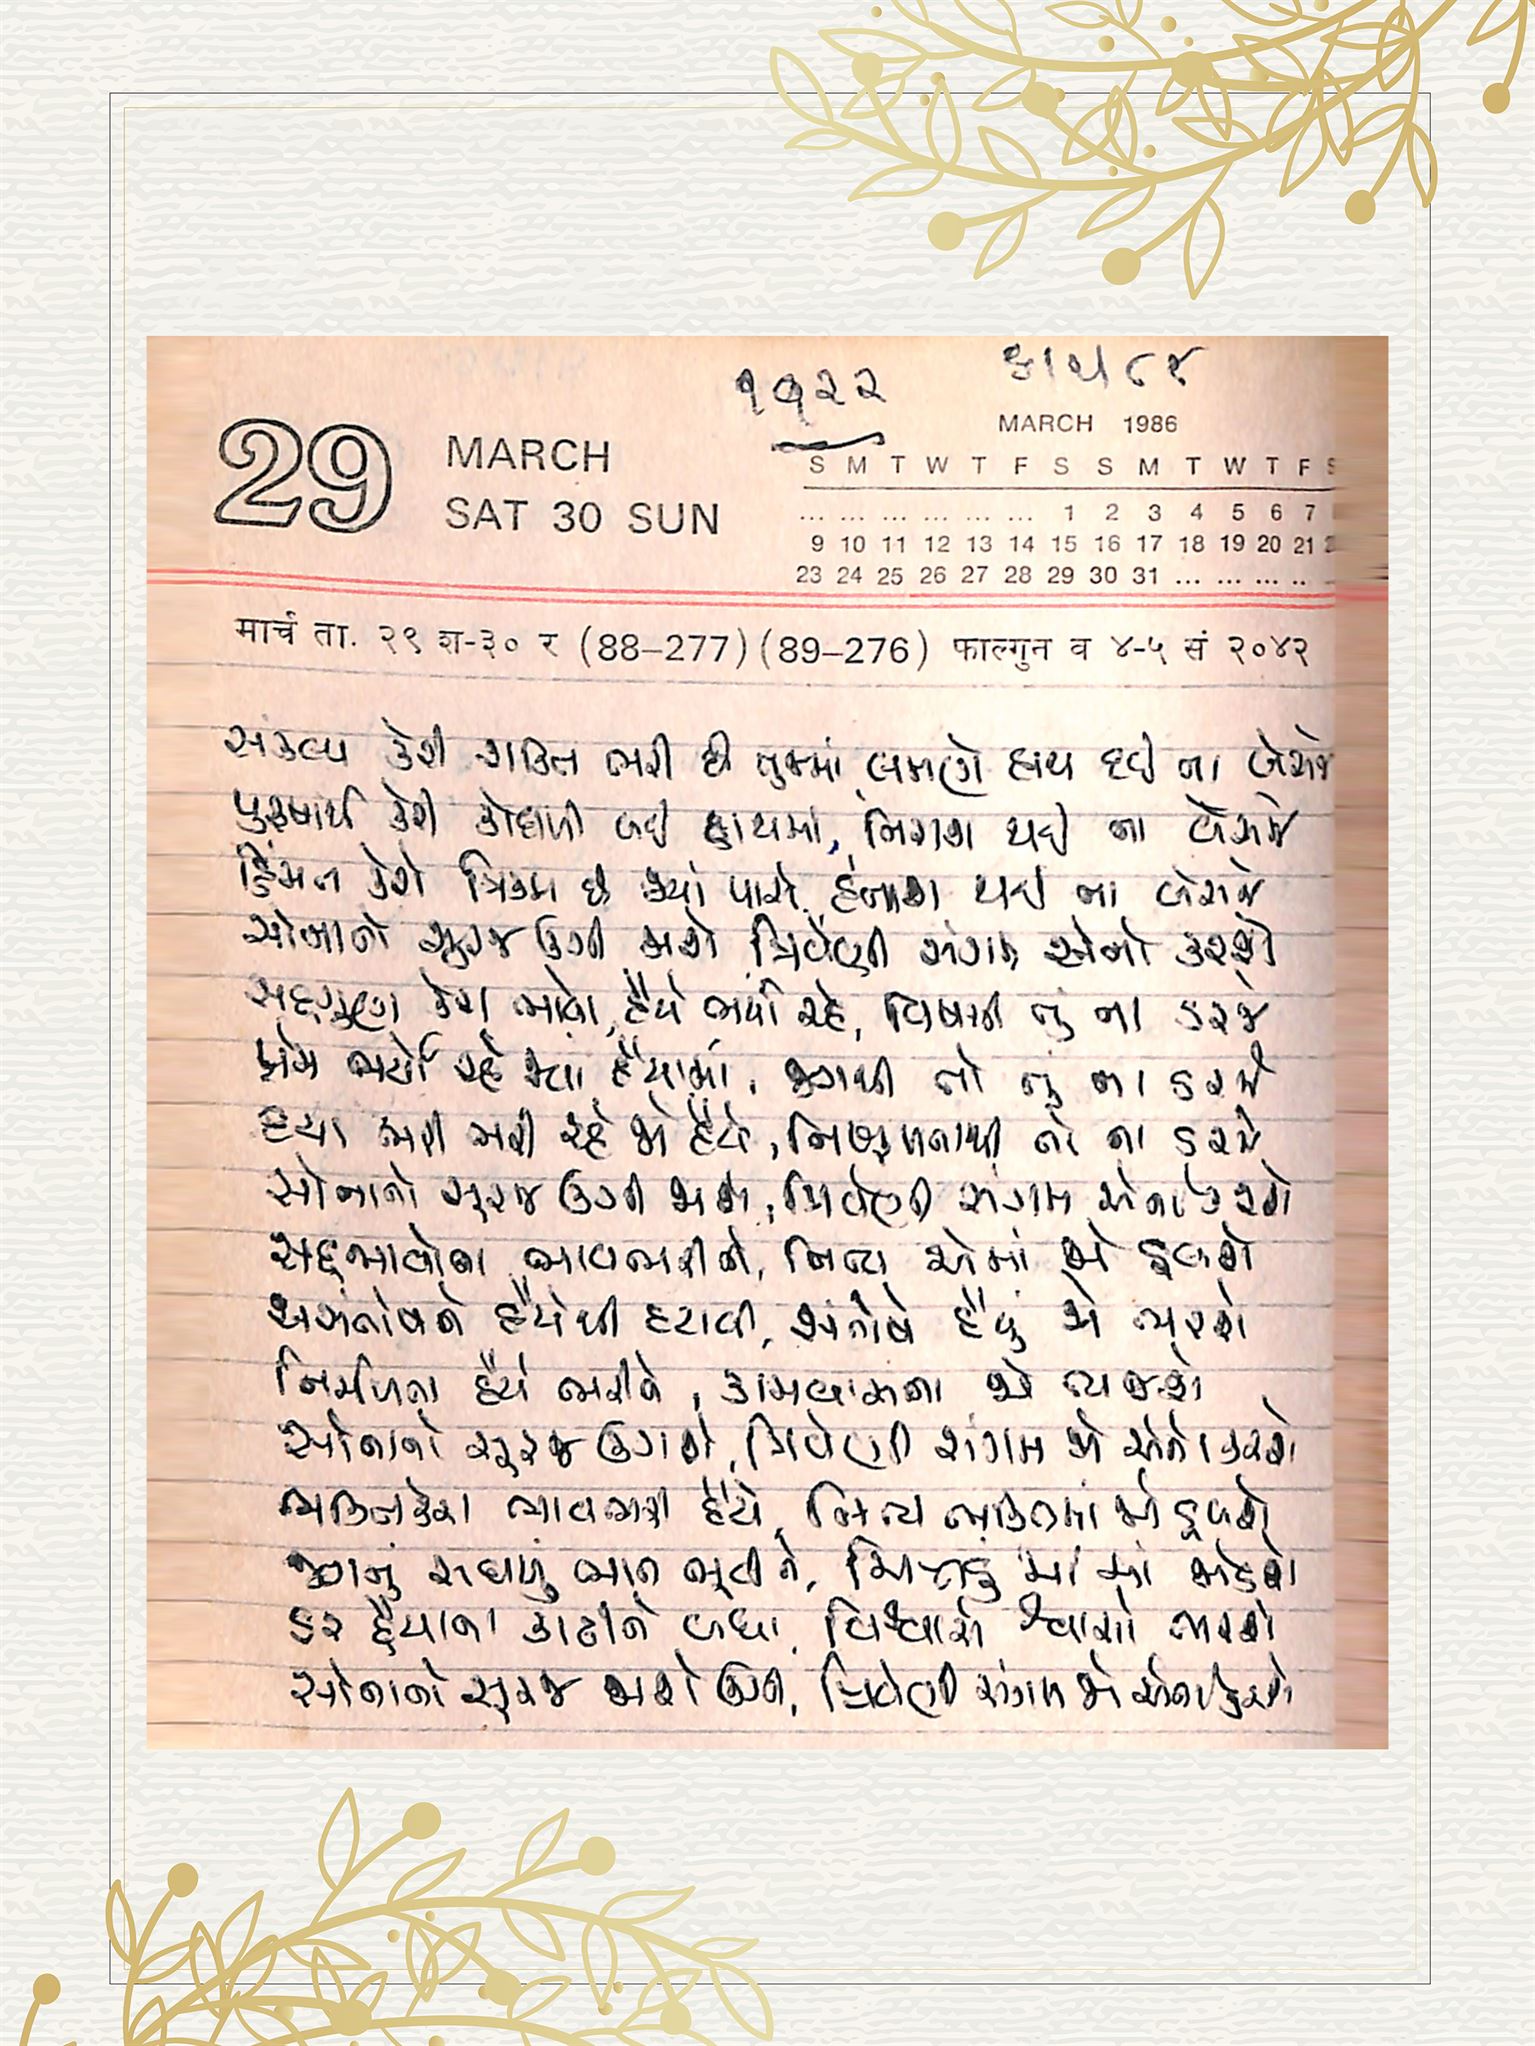 ૧૧૨૨
29 MARCH
SAT 30 SUN
MARCH 1986
S M T W T F S S M T W T F S
... ... ... ... ... ... 1 2 3 4 5 6 7
9 10 11 12 13 14 15 16 17 18 19 20 21
23 24 25 26 27 28 29 30 31 ... ... ... ..
मार्च ता. २९ श-३० र (88–277) (89–276) फाल्गुन व ४-५ सं २०४२
સંકલ્પ કેરી શક્તિ ભરી છે તુજમાં, લમણે હાથ દઈ ના બેસજે
પુરુષાર્થ કેરી કોદાળી લઈ હાથમાં, નિરાશ થઈ ના બેસજે
હિંમત કેરો ત્રિકમ છે જ્યાં પાસે, હતાશ થઈ ના બેસજે
સોનાનો સૂરજ ઉગી જાશે, ત્રિવેણી સંગમ એનો કરશે
સદ્દગુણ કેરા ભાવો, હૈયે ભર્યા રહે, વિષાદ તું ના કરજે
પ્રેમ ભર્યો રહે જ્યાં હૈયામાં, જગથી તો તું ના ડરજે
દયા ભરી ભરી રહે જો હૈયે, નિષ્ફળતાથી તો ના ડરજે
સોનાનો સૂરજ ઉગી જાશે, ત્રિવેણી સંગમ એનો કરશે
સદ્દભાવોના ભાવ ભરીને, નિત્ય એમાં જો ડૂબશે
અસંતોષને હૈયેથી હટાવી, સંતોષે હૈયું જો ભરશે
નિર્મળતા હૈયે ભરીને, કામવાસના જો ત્યજશે
સોનાનો સૂરજ ઉગશે, ત્રિવેણી સંગમ જો એનો કરશે
ભક્તિ કેરા ભાવ ભરી હૈયે, નિત્ય ભક્તિમાં જો ડૂબશે
જગનું સઘળું ભાન ભૂલીને, ચિત્તડું મા માં જોડશે
ડર હૈયાના કાઢીને બધા, વિશ્વાસે શ્વાસો ભરશે
સોનાનો સૂરજ જાશે ઉગી, ત્રિવેણી સંગમ જો એનો કરશે